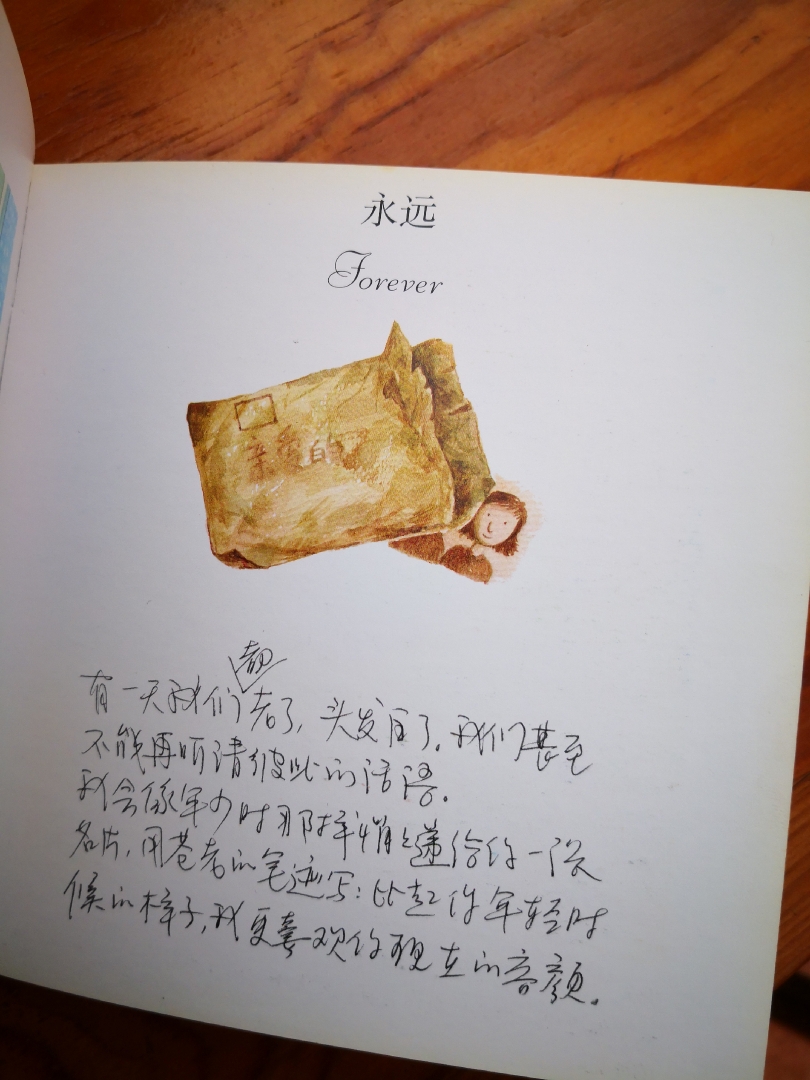 永远
Forever
亲爱的
有一天我们都老了，头发白了。我们甚至
不能再听清彼此的话语。
我会像年少时那样悄悄递给你一张
名片，用苍老的笔迹写：比起你年轻时
候的样子，我更喜欢你现在的容颜。